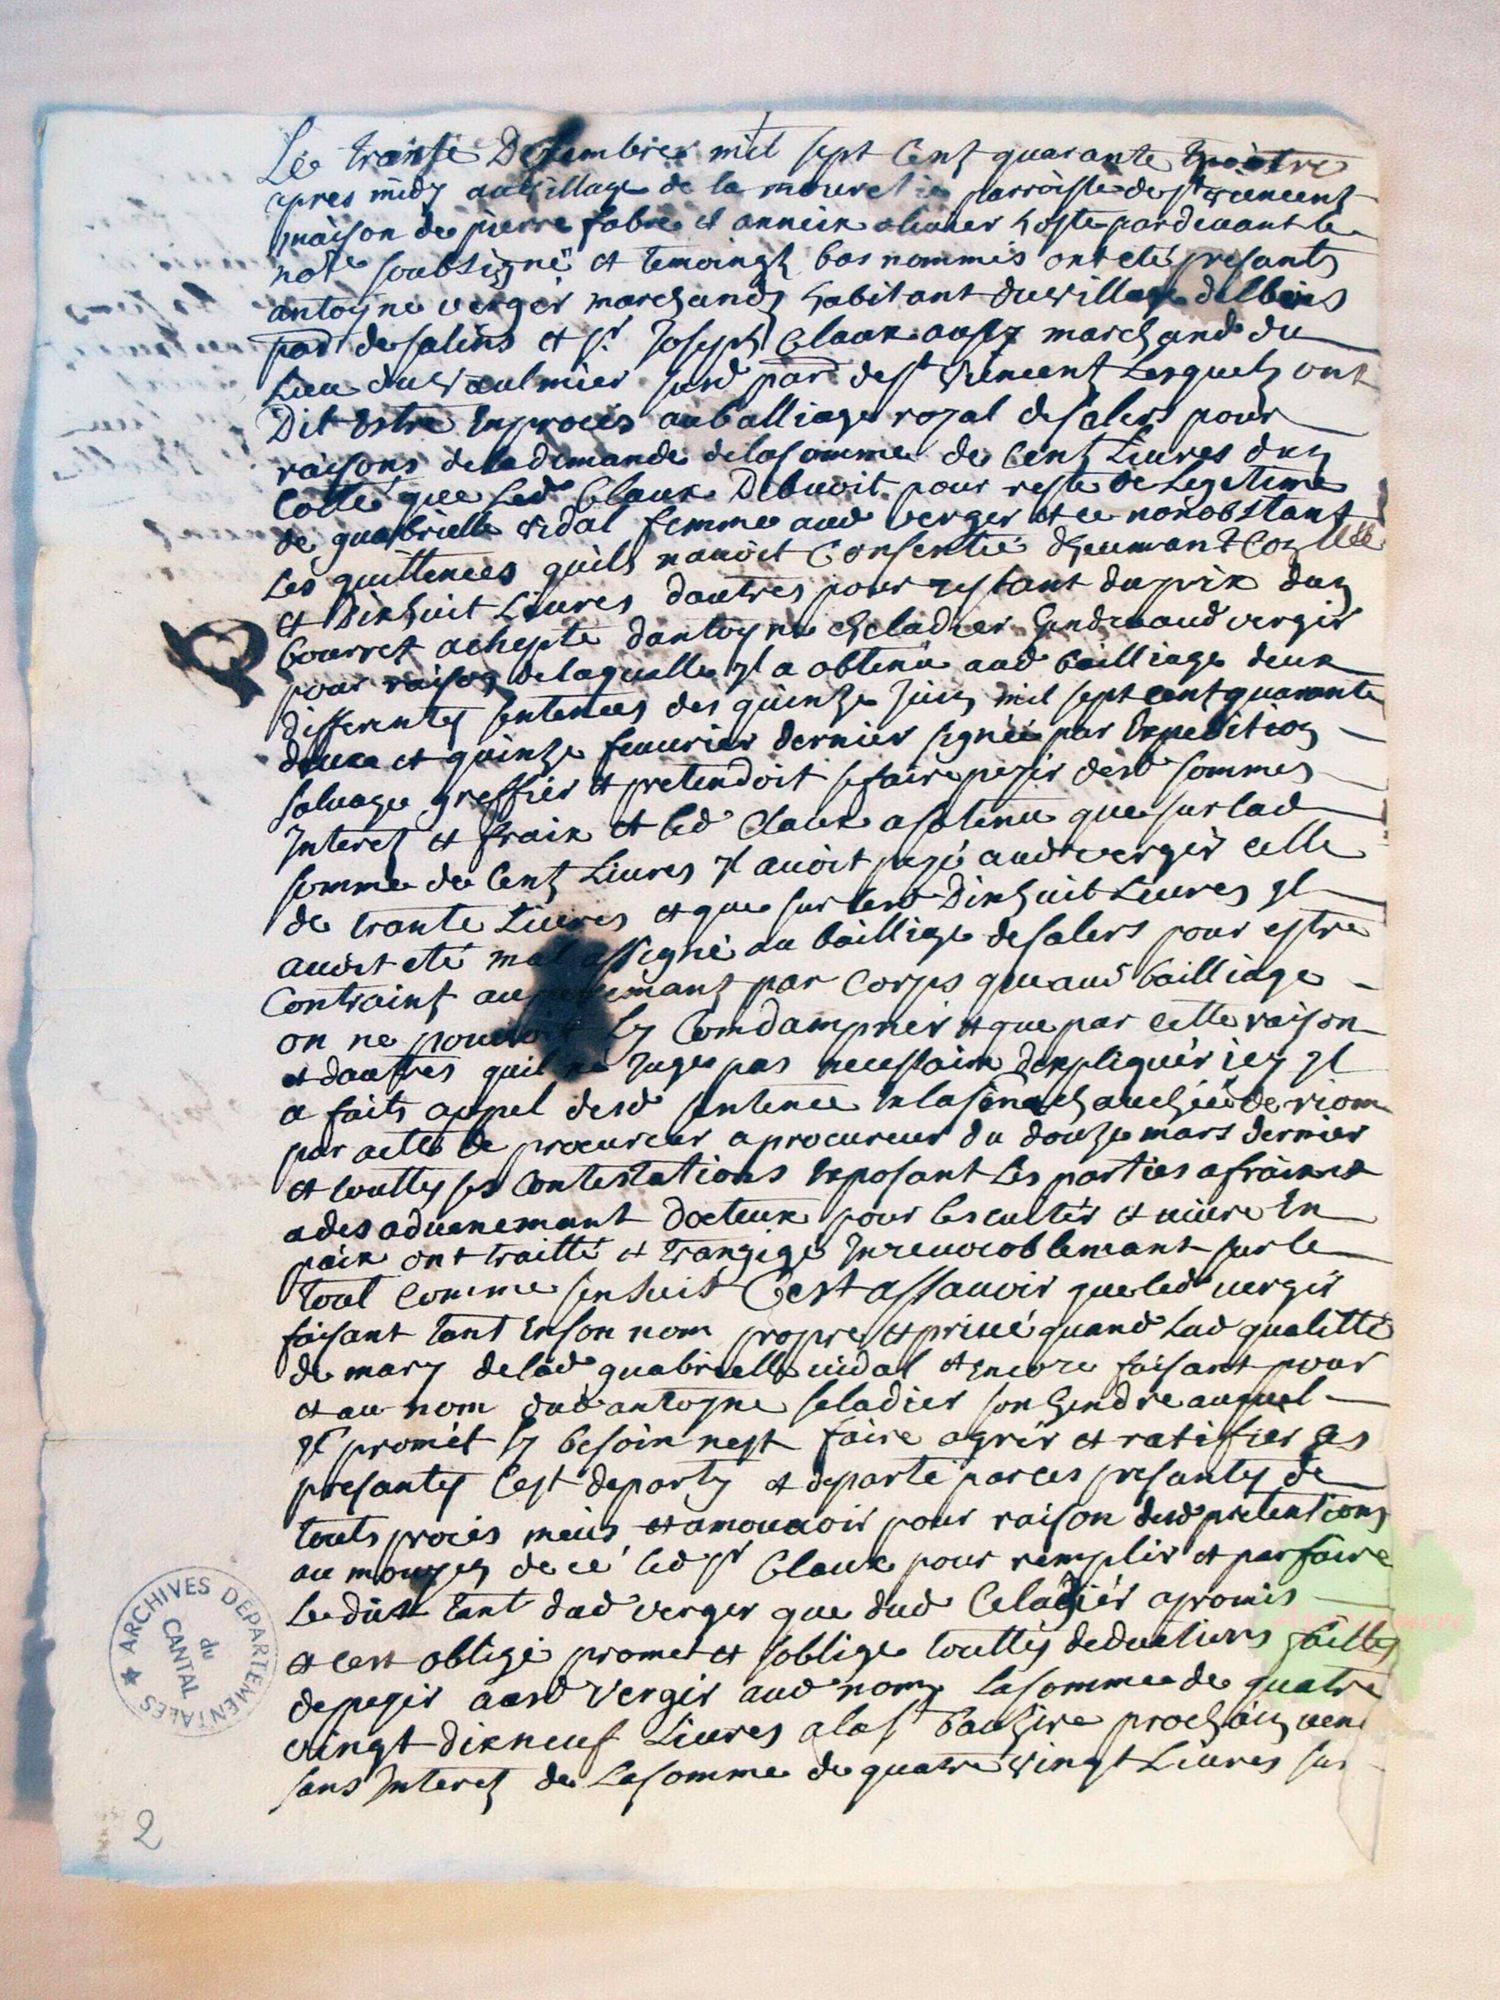 Le transe Dezembre mil sept Cent quarante
apres midy au village de la mouretie parroisse de st vincent
maison de pierre fabre et anneix oliuier hoste pardeuant le
notre soubsigné et temoingts bas nommés ont eté presants
antoyne verger marchands habitant du village dalbois
parr de salins et sr Joseph Claux aussy marchand du
Lieu du vaulmier susd parr de st vincent Lesquels ont
Dit Estre En procés au balliage royal de salers pour
raisons de la demande de la somme de Cent Liures dun
Cotté que Led Claux Debuoit pour reste de Legitime
de guabrielle vidal femme aud verger et ce nonobstant
Les quittences quils nauoit Consentie
et Dixhuit Liures dautres pour restant du prix dun
bourret achepte dantoyne cheladier gendre aud vergir
pour raison de laquelle yl a obtenu aud bailliage deux
differentes sentences des quinze Juin mil sept cent quarante
deux et quinze feuurier dernier signée par Expedition
saluage greffier et pretendoit se faire peyer desd sommes
Interet et fraix et led Claux a sotenu que sur lad
somme de Cent Liures yl auoit peyé aud verger celle
de trante Liures et que sur lesd Dixhuit Liures yl
auoit eté mal assigné au bailliage de salers pour estre
Contraint au par Corps quaud bailliage
on ne pouuoit Ly Comdampner et que par cette raison
et dautres quil ne Juge pas necessaire dexpliquer icy yl
a faits appel desd sentence En la sénéchauchée de riom
par acte de procureur a procureur du douze mars dernier
et touttes ses Contestations Exposant Les parties a fraix et
a des aduenemant docteux pour les euiter et uiure En
paix ont traitté et trangigé Inreuocoblemant sur le
tout Comme sensuit Cest assauoir que led vergir
faisant tant En son nom propre et priué quand Lad qualitté
de mary de lad guabrielle uidal et Encore faisant pour
et au nom dud antoyne seladier son gendre auquel
yl promet sy besoin nest faire agrér et ratifier les
presantes Cest departy et departe par ces presantes de
touts procés meus et amouuoir pour raison desd pretentions
au moyen de cé led sr Claux pour remplir et parfaire
Le dût tant dud verger que dud Celadiér a promis
et cest obligé promet et soblige touttes deductions faittes
de peyer aud vergir aud nom La somme de quatre
vingt dixneuf Liures a la st bauzire prochain
sans Interet de La somme de quatre vingt Liures sur
ARCHIVES DEPARTEMENTALES
du
CANTAL
2